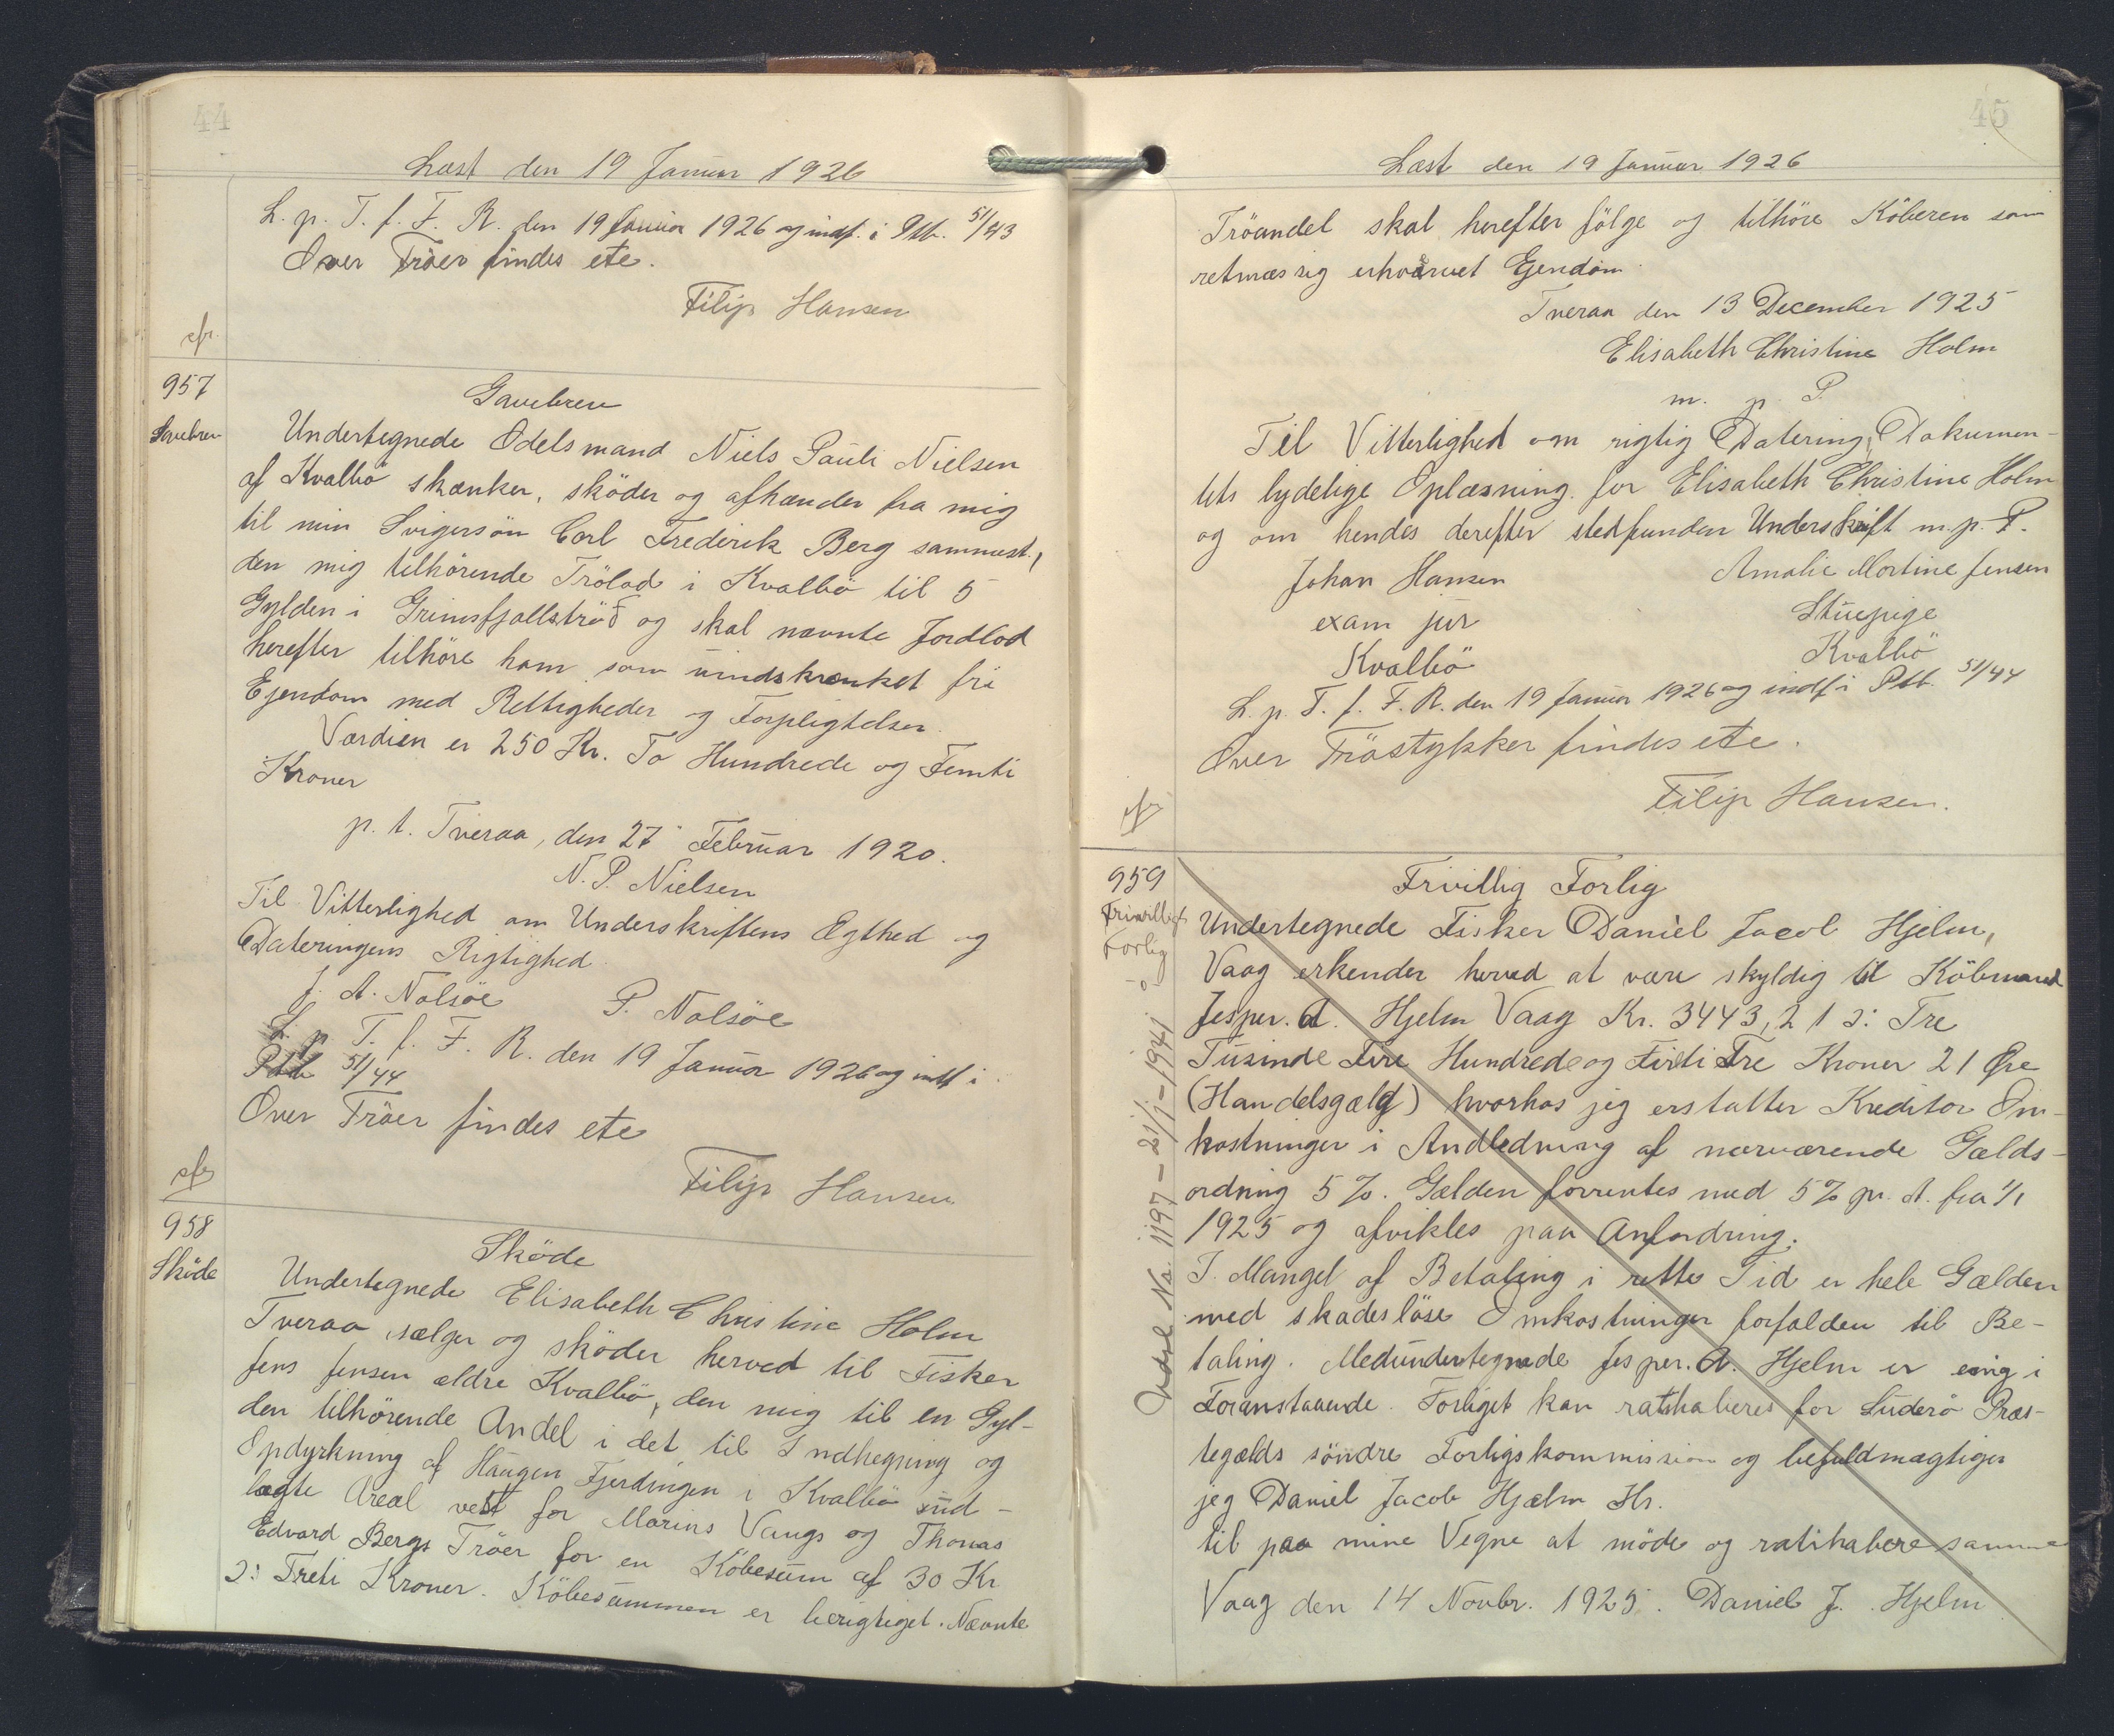 44
Læst den 19 Januar 1926
L. p. T. f. F. R. den 19 Januar 1926 og indf. i Ptb. 51/43
Over Tröer findes ete.
Filip Hansen
cfr.
957
Gavebrev
Gavebrev
Undertegnede Odelsmand Niels Pauli Nielsen
af Kvalbö skænker, sköder og afhænder fra mig
til min Svigersön Carl Frederik Berg sammest.,
den mig tilhörende Trölod i Kvalbö til 5
Gylden i Grimsfjallströd og skal nævnte Jordlod
herefter tilhöre ham som uindskrænket fri
Ejendom med Rettigheder og Forpligtelser.
Værdien er 250 Kr. To Hundrede og Femti
Kroner
p. t. Tveraa, den 27 Februar 1920.
N. P. Nielsen
Til Vitterlighed om Underskriftens Ægthed og
Dateringens Rigtighed
J. A. Nolsöe P. Nolsöe
L. p. T. f. F. R. den 19 Januar 1926 og indf i
Ptb 51/44
Over Tröer findes ete
Filip Hansen
cfr
958
Sköde
Sköde
Undertegnede Elisabeth Christine Holm
Tveraa sælger og sköder herved til Fisker
Jens Jensen ældre Kvalbö, den mig til en Gyl-
den tilhörende Andel i det til Indhegning og
Opdyrkning af Haugen Fjerdingen i Kvalbö ud-
lagte Areal vest for Marius Vangs og Thomas
Edvard Bergs Tröer for en Köbesum af 30 Kr
ɔ: Treti Kroner. Köbesummen er berigtiget. Nævnte
45
Læst den 19 Januar 1926
Tröandel skal herefter fölge og tilhöre Köberen som
retmæssig erhvervet Ejendom.
Tveraa den 13 December 1925
Elisabeth Christine Holm
m. p. P.
Til Vitterlighed om rigtig Datering, Dokumen-
tets lydelige Oplæsning for Elisabeth Christine Holm
og om hendes derefter stedfunden Underskrift m. p. P.
Johan Hansen Amalie Mortine Jensen
exam jur Stuepige
Kvalbö Kvalbö
L. p. T. f. F. R. den 19 Januar 1926 og indf i Ptb. 51/44
Over Tröstykker findes ete.
Filip Hansen.
cfr
959
Frivilligt
Forlig
Frivillig Forlig
Undertegnede Fisker Daniel Jacob Hjelm,
Vaag erkender herved at være skyldig til Köbmand
Jesper. A. Hjelm Vaag Kr. 3443,21 ɔ: Tre
Tusinde Fire Hundrede og Firti Tre Kroner 21 Øre
(Handelsgæld) hvorhos jeg erstatter Kreditor Om-
kostninger i Andledning af nærværende Gælds-
ordning 5%. Gælden forrentes med 5% pr. A. fra 1/1
1925 og afvikles paa Anfordring.
I Mangel af Betaling i rette Tid er hele Gælden
med skadesløse Omkostninger forfalden til Be-
taling. Medundertegnede Jesper. A. Hjelm er enig i
Foranstaaende. Forliget kan ratihaberes for Suderö Præs-
tegælds söndre Forligskommission og befuldmægtiges
jeg Daniel Jacob Hjælm Hr.
til paa mine Vegne at möde og ratihabere samme
Vaag den 14 Novbr. 1925. Daniel J. Hjelm
No. 1197 - 21/1-1941